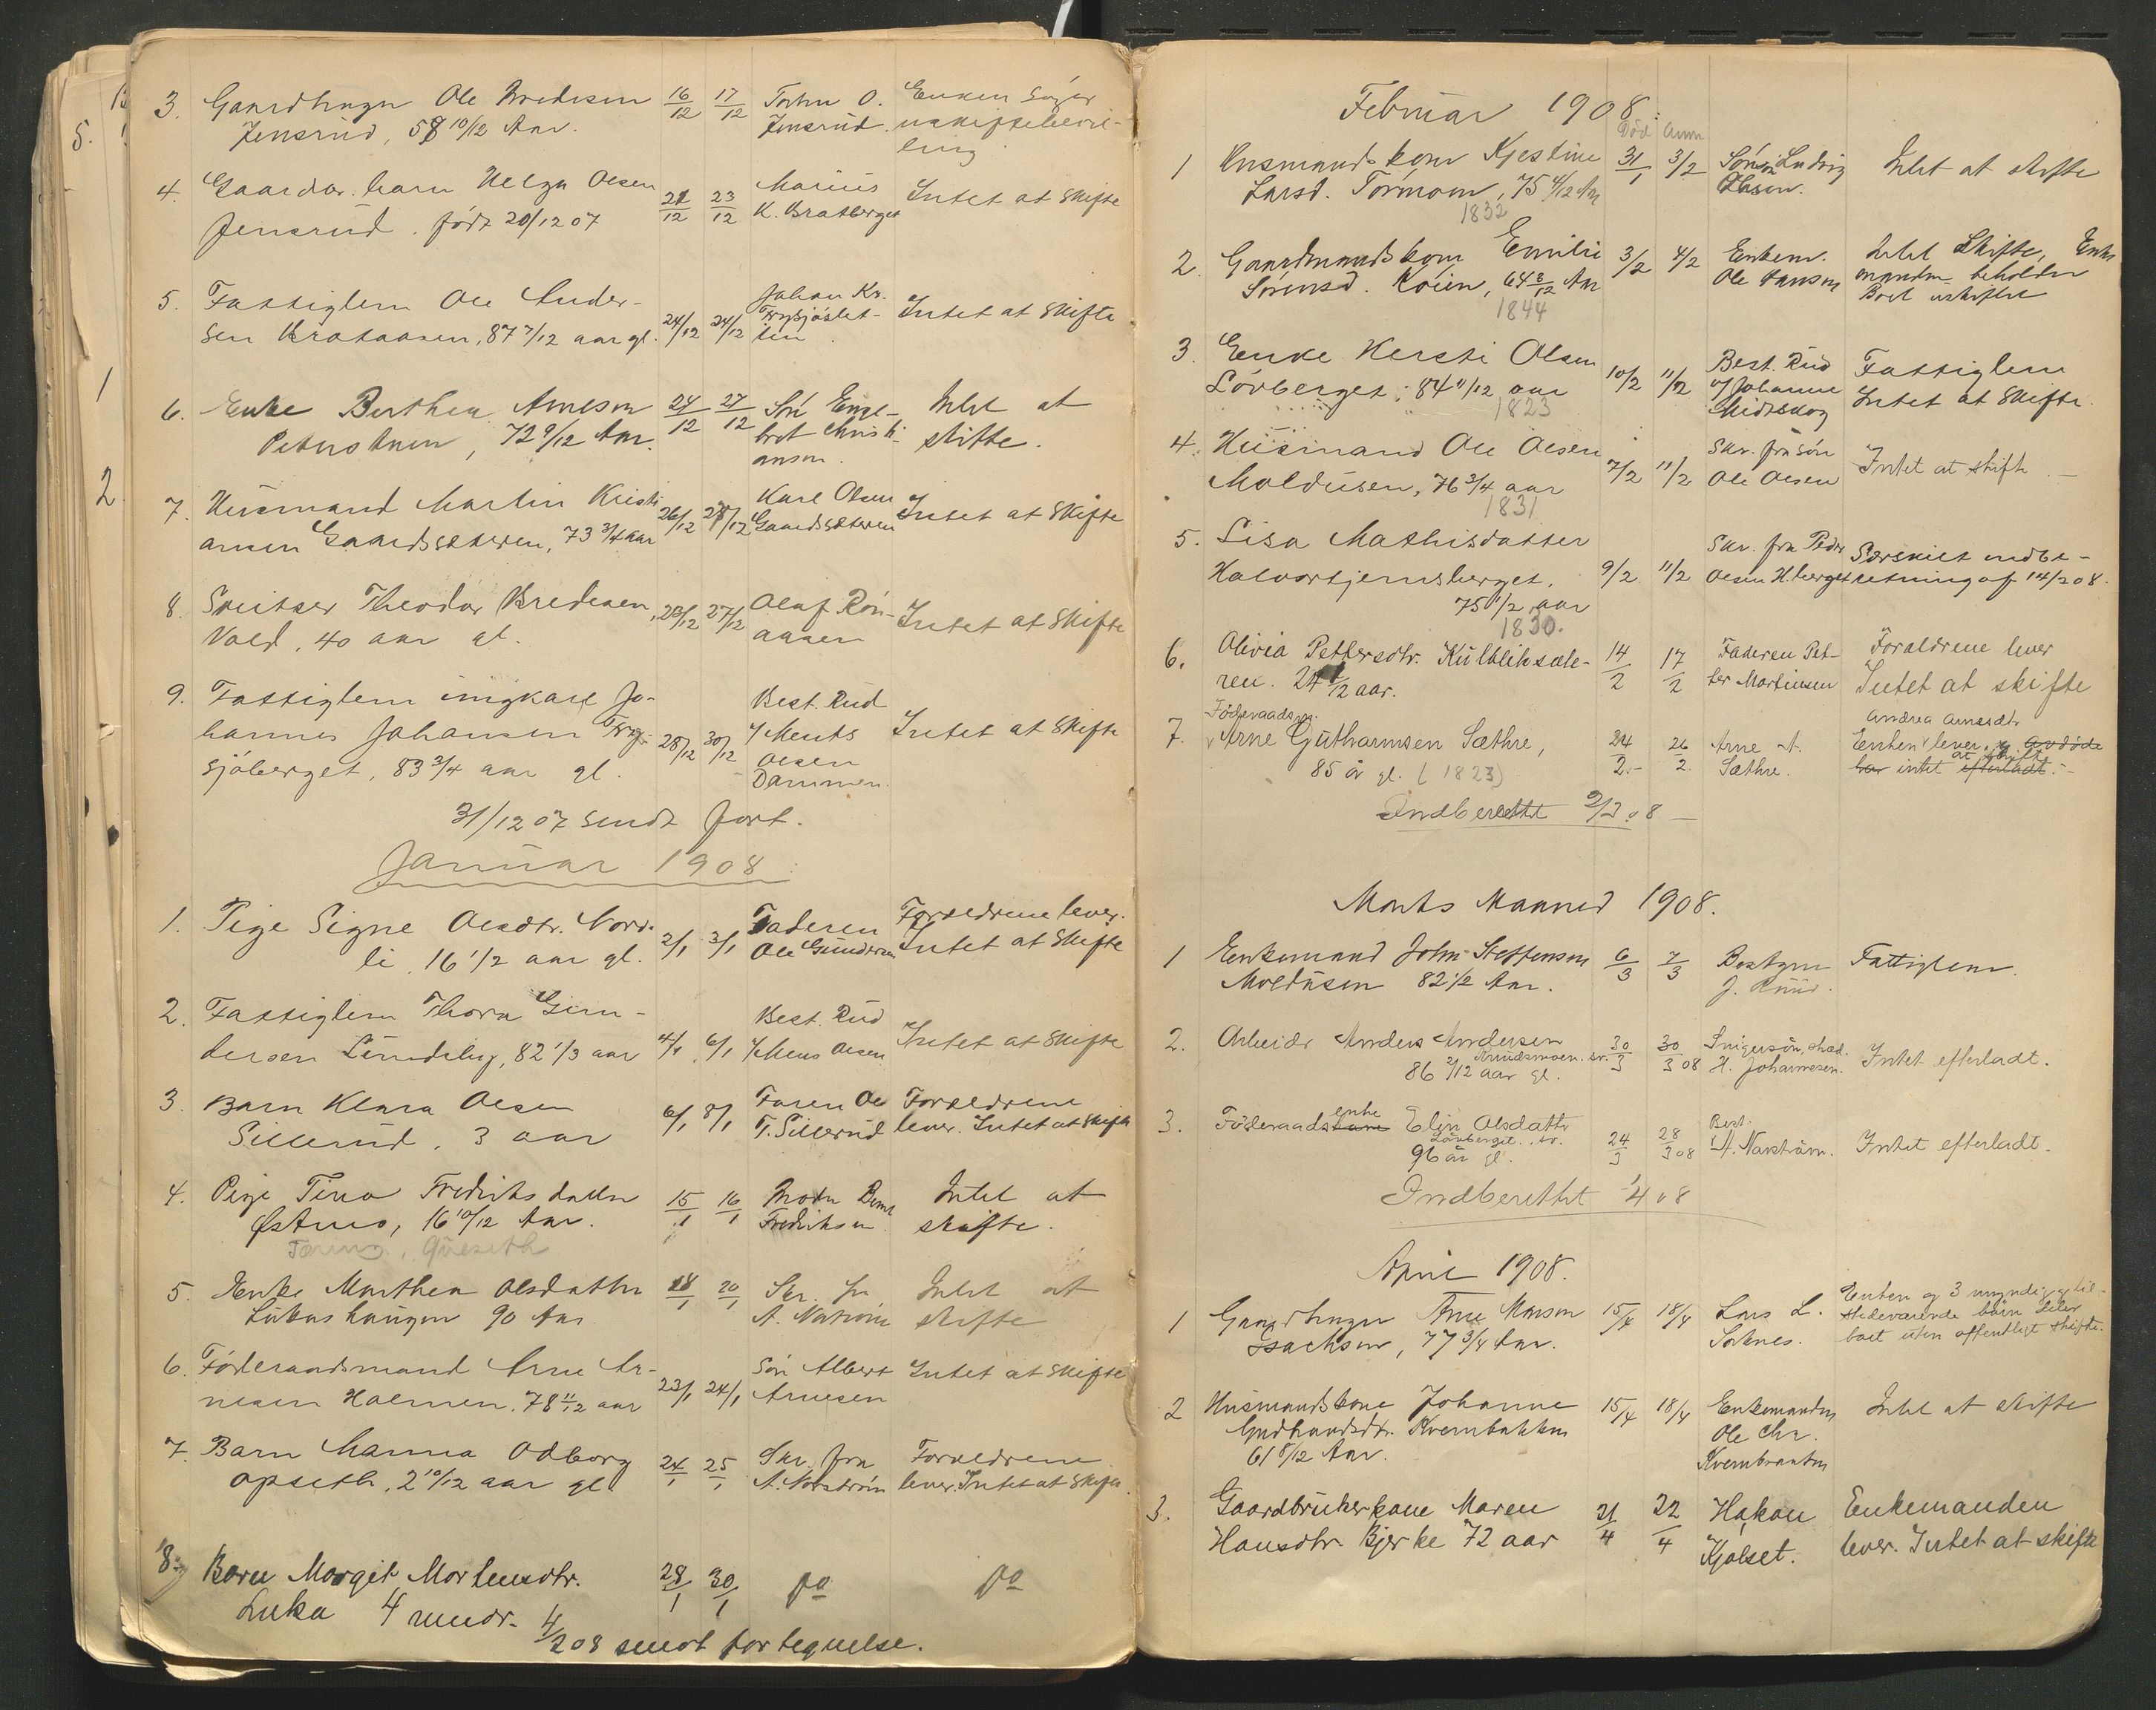 3. Gaardbruger Ole Bredesen 16/12 17/12 John O. Enken søger
Jensrud, 58 10/12 Aar. Jensrud. uskiftebevil-
ling
4. Gaardbr. barn Helga Olsen 21/12 23/12 Marius Intet at skifte
Jensrud. født 20/12 07 K. Bratberget
5. Fattiglem Ole Ander- 24/12 24/12 Johan Kr. Intet at skifte
sen Brataasen, 87 7/12 aar gl. Frysjøslet-
ten
6. Enke Berthea Arnesen 24/12 27/12 Søn Enge- Intet at
72 9/12 Aar. bret Christi- skifte.
ansen.
7. Husmand Martin Kristi- 26/12 27/12 Karl Olsen Intet at skifte
ansen Gaardssæteren, 73 3/4 aar Gaardssæteren
8. Theodor Bredesen 27/12 Olaf Røn- Intet at skifte
Vold, 40 aar gl. aasen
9. Fattiglem ungkarl Jo- 28/12 30/12 Best. Rud Intet at skifte
hannes Johansen Fryg- v/ Ments
sjøberget, 83 3/4 aar gl. Olsen
Dammen.
31/12 07 sendt fort.
Januar 1908.
1. Pige Signe Olsdtr. Nord- 2/1 3/1 Faderen Forældrene lever.
li, 16 1/2 aar gl. Ole Gundersen Intet at skifte
2. Fattiglem Thora Gun- 4/1 6/1 Best. Rud Intet at skifte
dersen 82 1/3 aar v/ Mens Olsen
3. Barn Klara Olsen 6/1 8/1 Faren Ole Forældrene
Sillerud, 3 aar T. Sillerud lever. Intet at skifte
4. Pige Tina Fredriksdatter 15/1 16/1 Broder Bernt Intet at
16 10/12 Aar. Fredriksen skifte.
5. Enke Marthea Olsdatter 18/1 20/1 Skr. fra Intet at
Lukashaugen 90 Aar A. Nastrøm skifte
6. Føderaadsmand Arne Ar- 23/1 24/1 Søn Albert Intet at skifte
nesen Holmen, 78 11/12 aar Arnesen
7. Barn Manna Odborg 24/1 25/1 Skr. fra Forældrene
Opseth, 2 10/12 aar gl. A. Nastrøm lever. Intet at skifte.
8. Barn Margit Mortensdtr. 28/1 30/1 do do
Luka 4 mndr.
4/2 08 sendt fortegnelse.
Februar 1908.
Død Anm
1 Husmandskone Kjestine 31/1 3/2 Søn Ludvig Intet at skifte
Larsd. Tørmoen, 75 4/12 Aar Olsen.
1832
2. Gaardmandskone Emilie 3/2 4/2 Enkem. Intet Skifte, Enke
Sørensd. Køien, 64 8/12 Aar Ole Hansen manden beholder
1844 Boet uskiftet
3. Enke Kersti Olsen 10/2 11/2 Best. Rud Fattiglem
Løvberget, 84 11/12 aar v/ Johanne Intet at skifte.
1823 Midtskog
4. Husmand Ole Olsen 7/2 11/2 Skr. fra søn Intet at skifte
Moldusen, 76 3/4 aar Ole Olsen
1831
5. Lisa Mathisdatter 9/2 11/2 Skr. fra Peder Særskilt indbe-
Halvortjernsberget, Olsen H.berget retning af 14/2 08.
75 1/2 aar
1830.
6. Olivia Pettersdtr. Kulbliksæte- 14/2 17/2 Faderen Pet- Foraldrene lever
ren. 24 /12 aar. ter Martinsen Intet at skifte
Føderaadsm. Andrea Arnesdtr
7. Arne Guthormsen Sæthre, 24/2 26/2 Arne A. Enken lever, og avdøde
85 år gl. (1823) Sæthre. har intet efterladt. at skifte
Indberettet 2/3 08
Marts Maaned 1908.
1 Enkemand John Steffensen 6/3 7/3 Bestyrer Fattiglem.
Moldusen 82 1/2 Aar. J. Ruud.
2. Arbeider Anders Andersen 30/3 30/3 08 Svigersøn, Intet efterladt.
86 2/12 aar gl. H. Johannesen.
3. Føderaadskone enke Elin Olsdattr 24/3 28/3 08 Best. Intet efterladt.
Løvberget 96 år gl. A. Naxstrøm.
Indberettet 1/4 08
April 1908.
1 Gaardbruger Arne Larsen 15/4 18/4 Lars L. Enken og 3 myndige, til-
Isachsen, 77 3/4 Aar. Soknes. stedeværende børn deler
boet uten offentligt skifte.
2 Husmandskone Johanne 15/4 18/4 Enkemanden Intet at skifte
Gudbrandsdtr. Kvernbakken Ole Chr.
61 8/12 Aar. Kvernbraaten
3. Gaardbrukerkone Maren 21/4 22/4 Håkon Enkemanden
Hansdtr. Bjerke 72 aar Kjølset. lever. Intet at skifte